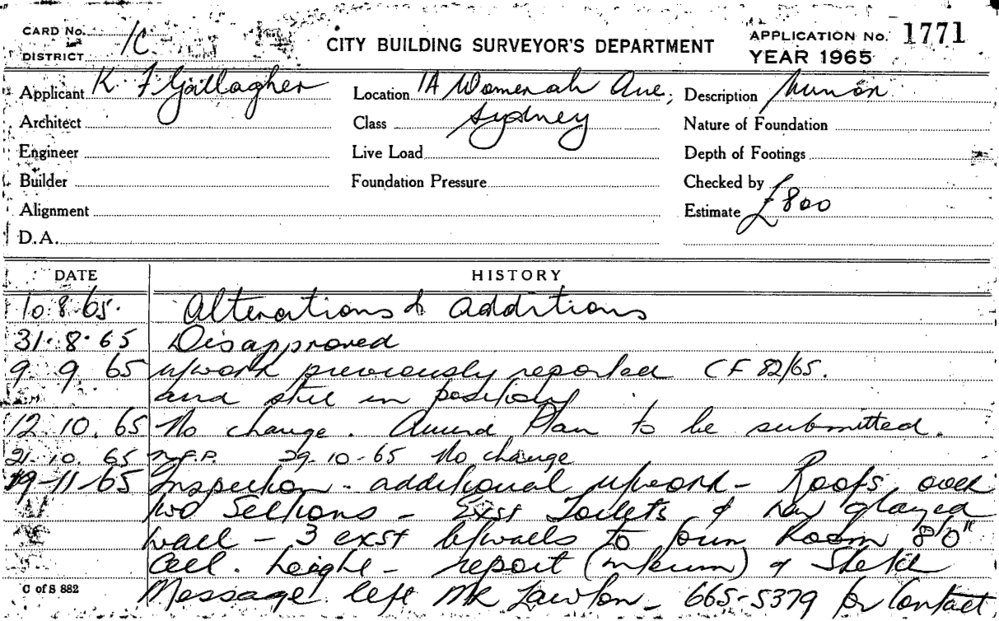 CARD No.
DISTRICT 1C
CITY BUILDING SURVEYOR'S DEPARTMENT
APPLICATION No. 1771
YEAR 1965
Applicant K F Gallagher
Location 1A Womerah Ave,
Description
Architect
Class Sydney
Nature of Foundation
Engineer
Live Load
Depth of Footings
Builder
Foundation Pressure
Checked by
Alignment
Estimate £800
D.A.
DATE HISTORY
10.8.65. Alterations & additions
31.8.65 Disapproved
9.9.65 u/work previously reported CF 82/65.
and still in position
12.10.65 No change. Amend Plan to be submitted.
21.10.65 29-10-65 No change
19-11-65 Inspection - additional u/work - Roofs over
two Sections - Exst Toilets & new glazed
wall - 3 exst walls to form Room 8'0"
Ceil. height - report (interim) & Sketch
Message left Mr Lawton - 665-5379 for Contact
C of S 882